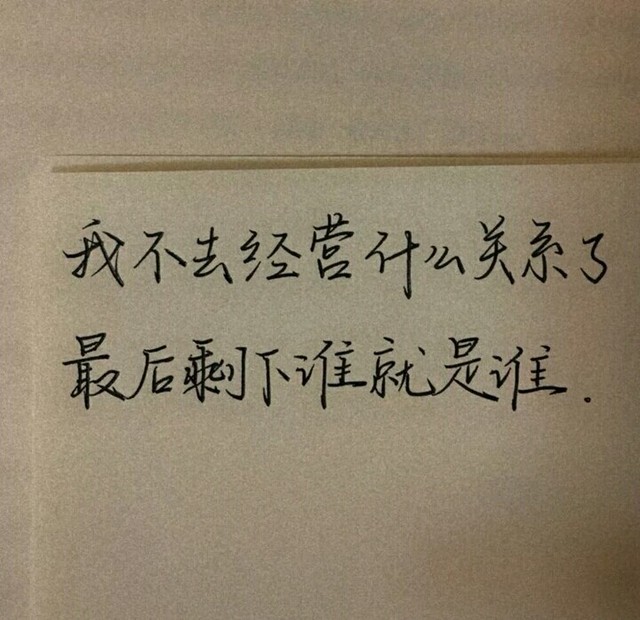 我不去经营什么关系了
最后剩下谁就是谁.